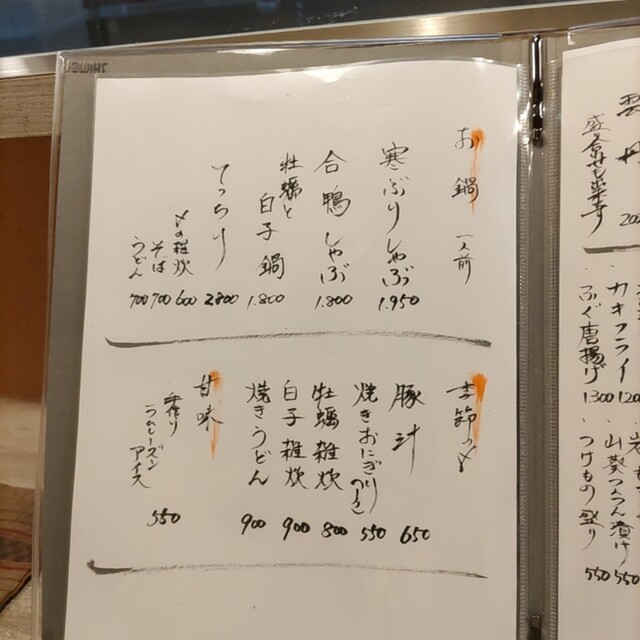 お鍋 一人前
寒ぶりしゃぶ 1.950
合鴨しゃぶ 1.800
牡蠣と
白子鍋 1.800
てっちり 2800
〆の雑炊 600
そば 700
うどん 700
季節の〆
豚汁 650
焼きおにぎり(一ケ) 550
牡蠣雑炊 800
白子雑炊 900
焼きうどん 900
甘味
手作り
ラムレーズン
アイス 550
盛合せも出来ます
カキフライ 120
ふぐ唐揚げ 1300
山葵つくん漬け 550
つけもの盛り 550